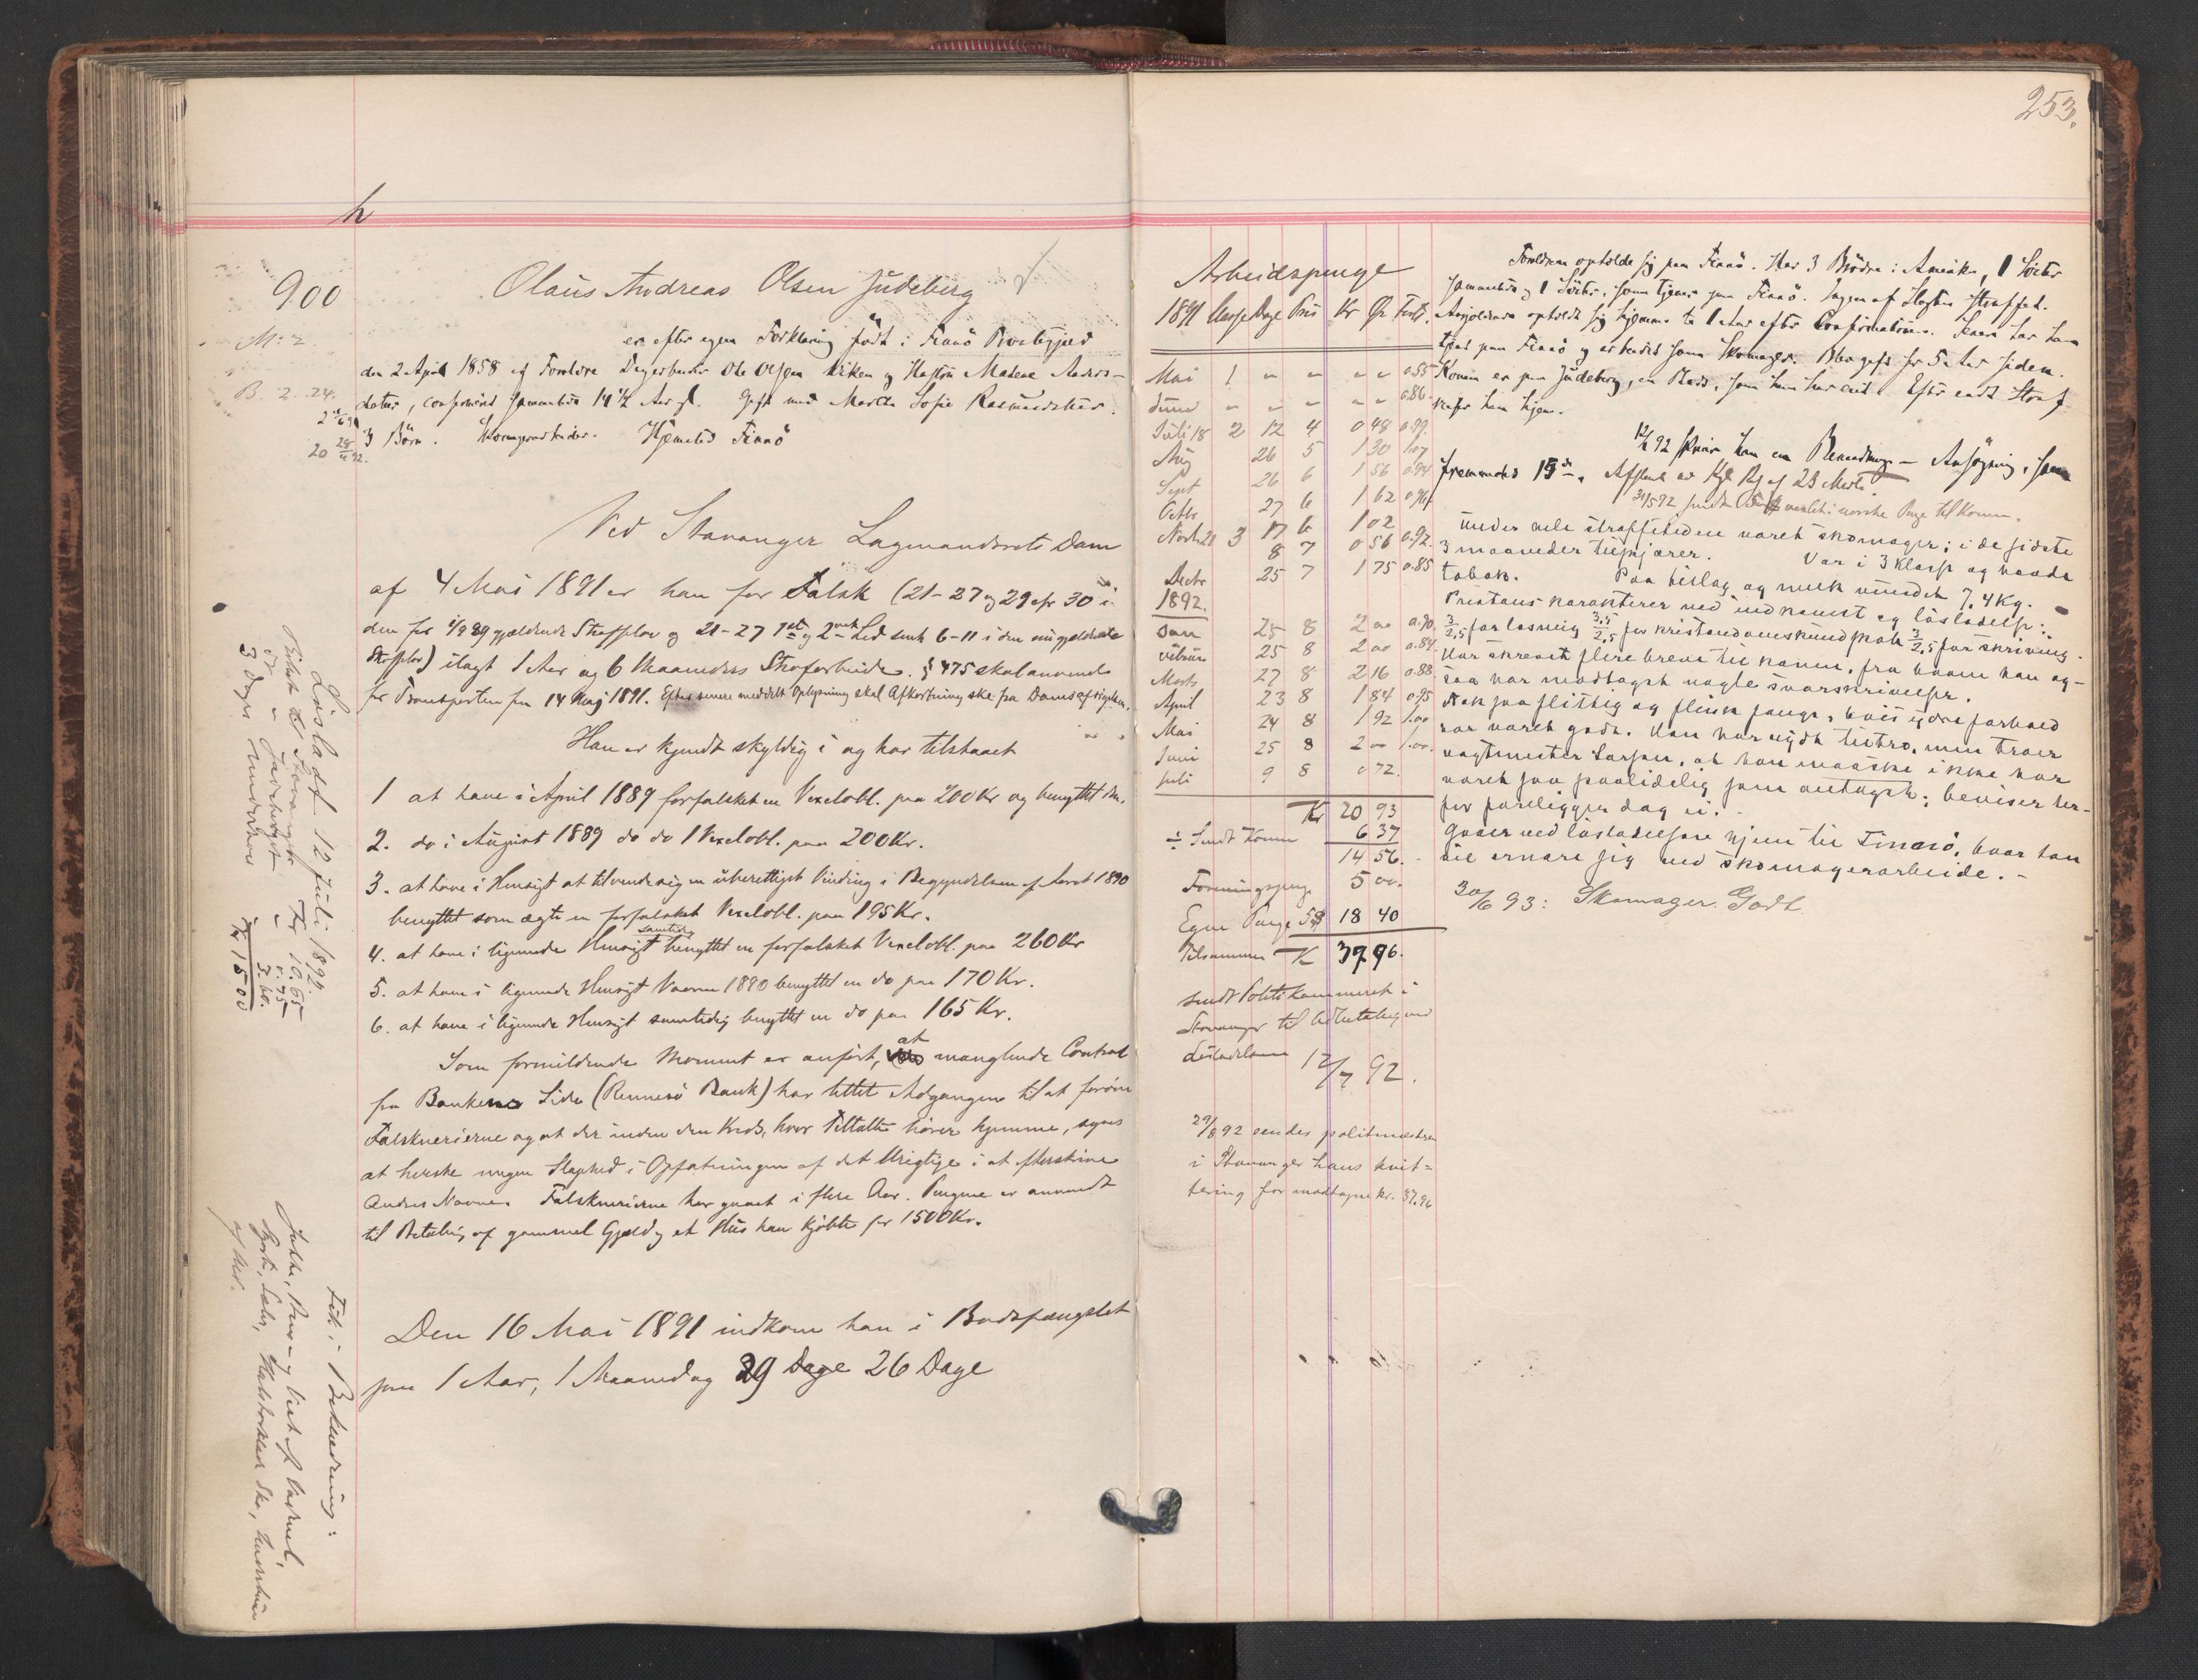 253.
h
900
Olaus Andreas Olsen Judeberg
No 2.
B. 2. 24.
er efter egen Forklaring født i Finnö Præstegjeld
den 2 April 1858 af Forældre Ole Olsen Viken og Hustru Madene Anders-
datter, confirmeret sammesteds 14 1/2 Aar gl. Gift med Martha Sofie Rasmusdatter.
3 Børn. Skomagerarbeider. Hjemsted Finnö
Ved Stavanger Lagmandsrets Dom
af 4 Mai 1891 er han for Falsk (21-27 og 29 cfr 30 i
den før 1/9 89 gjældende Straffelov og 21-27 1st og 2net Led samt 6-11 i den nugjældende
Straffelov) ilagt 1 Aar og 6 Maaneders Strafarbeide. § 475 skal anvendes
for Transporten fra 14 Maj 1891. Efter senere meddelt Oplysning skal Afkortning ske fra Doms afsigelsen.
Han er kjendt skyldig i og har tilstaaet
1 at have i April 1889 forfalsket en Vexelobl. paa 200 Kr og benyttet den.
2. do i August 1889 do do 1 Vexelobl. paa 200 Kr.
3. at have i Hensigt at tilvende sig en uberettiget Vinding i Begyndelsen af Aaret 1890
benyttet som ægte en forfalsket Vexelobl. paa 195 Kr.
4. at have i lignende Hensigt samtidig benyttet en forfalsket Vexelobl. paa 260 Kr
5. at have i lignende Hensigt Vaaren 1890 benyttet en do paa 170 Kr.
6. at have i lignende Hensigt samtidig benyttet en do paa 165 Kr.
Som formildende Moment er anført, at manglende Control
fra Bankens Side (Rennesö Bank) har lettet Adgangen til at forøve
Falsknerierne og at der inden den Kreds, hvor Tiltalte hører hjemme, synes
at herske megen Slaphed i Opfatningen af det Urigtige i at efterskrive
Andres Navne. Falsknerierne har gaaet i flere Aar. Pengene er anvendt
til Betaling af gammel Gjæld og et Hus han kjøbte for 1500 Kr.
Den 16 Mai 1891 indkom han i Bodsfængslet
paa 1 Aar, 1 Maaned og 29 Dage 26 Dage
Løsladt 12 Juli 1892.
Billet til Stavanger Kr 10.65
do " Judeberget " 0.75
3 Dages Underhold 3.60
Kr 15.00
Fik i Beklædning:
Jakke, Buxe og Vest af Vadmel,
Skjorte, Seler, Halstørklæde, Sko,
Arbeidspenge
1891 Klasse Dage Pris Kr Øre
Mai 1 " " " " 0.55
Juni " " " " " 0.86
Juli 18 2 12 4 0 48 0.99.
Aug 26 5 1 30 1.07
Sept 26 6 1 56 0.94
Octbr 27 6 1 62 0.96
Novb 21 3 17 6 1 02
8 7 0 56 0.92.
Decbr 25 7 1 75 0.85
1892.
Jan 25 8 2 00 0.90.
Februar 25 8 2 00 0.84.
Marts 27 8 2 16 0.88.
April 23 8 1 84 0.95
Mai 24 8 1 92 1.00
Juni 25 8 2 00 1.00.
Juli 9 8 0 72.
Kr 20 93
÷ Sendt Konen 6 37
14 56.
Foreningspenge 5 00.
Egne Penge 18 40
Tilsammen Kr 37.96.
sendt Politikammeret i
Stavanger til Udbetaling ved
Løsladelsen 12/7 92.
29/8 92 sendes politimesteren
i Stavanger hans kvit-
tering for modtagne kr. 37.96
Forældrene opholde sig paa Finnö. Har 3 Brødre i Amerika, 1 Søster
sammesteds og 1 Søster, som tjener paa Finnö. Ingen af Slægten straffet.
Angjældende opholdt sig hjemme til 1 Aar efter Confirmationen. Siden har han
tjent paa Finnö og arbeidet som Skomager. Blev gift for 5 Aar siden.
Konen er paa Judeberg, en Plads, som han har eiet. Efter endt Straf
reiser han hjem.
12/3 92 skriver han en Benaadnings-Ansøgning, som
fremsendes 15de. Afslaaet ved Kgl Res af 28 Marts.
31/5 92 sendt norske Penge til Konen.
Under hele straffetiden været skomager; i de sidste
3 maaneder tilskjærer. Var i 3 klasse og havde
tobak. Paa tillæg og melk vundet 7,4 Kg.
Præstens karakterer ved indkomst og løsladelse:
3/2,5 for læsning 3,5/2,5 for kristendomskundskab 3/2,5 for skrivning.
Har skrevet flere breve til konen, fra hvem han og-
saa har modtaget nogle svarskrivelser.
Nok saa flittig og flink fange, hvis ydre forhold
har været godt. Han har nydt tiltro, men troer
vagtmester Larsen, at han maaske ikke har
været saa paalidelig som antaget; beviser her-
for foreligger dog ei. -
Gaaer ved løsladelsen hjem til Finnö, hvor han
vil ernære sig ved skomagerarbeide. -
30/6 93: Skomager. Godt.